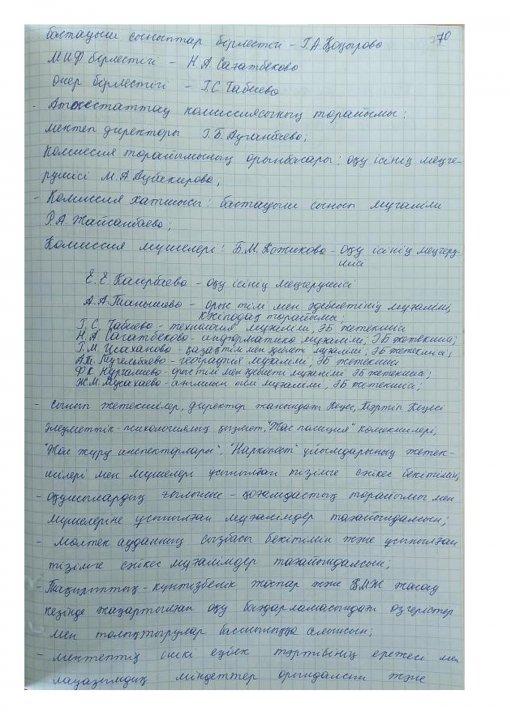 70
бастауыш сыныптар бірлестігі - Г.А Кодырова
МИФ бірлестігі - Н.А Сагатбекова
Өнер бірлестігі - Г.С Габиева
- Аттестаттау комиссиясының төрайымы:
мектеп директоры Г.Б. Ауганбаева,
Комиссия төрайымының орынбасары: оқу ісінің меңге-
рушісі М.А Аубакирова,
- Комиссия хатшысы: бастауыш сынып мұғалімі
Р.А. Жайсанбаева;
Комиссия мүшелері: Б.М. Кожикова - оқу ісінің меңгеру-
шісі
Е.Е Каирбаева - оқу ісінің меңгерушісі
А.А. Танышева - орыс тілі мен әдебиетінің мұғалімі,
Кәсіподақ төрайымы.
Г.С. Габиева - технология мұғалімі, ӘБ жетекшісі
Н.А Сагатбекова - информатика мұғалімі, ӘБ жетекшісі;
Г.М. Исаханова - қазақ тілі мен әдебиет мұғалімі, ӘБ жетекшісі;
А.К. - география мұғалімі, ӘБ жетекшісі
Ф.К Нургалиева - орыс тілі мен әдебиет мұғалімі ӘБ жетекшісі;
Ж.М. Мукашева - ағылшын тілі мұғалімі, ӘБ жетекшісі;
- сынып жетекшілер, директор жанындағы Кеңес, Тәртіп Кеңесі
Әлеуметтік - психологиялық қызмет, "Жас полиция" көмекшілері,
"Жол жүру инспекторлары", "Наркопост" ұйымдарының жетек-
шілері мен мүшелері ұсынылған тізімге сәйкес бекітілсін,
- Оқушылардың ғылыми - қоғамдастық төрайымы мен
мүшелеріне ұсынылған мұғалімдер тағайындалсын;
- мөлтек ауданның сызбасы бекітілсін және ұсынылған
тізімге сәйкес мұғалімдер тағайындалсын;
- Тақырыптық - күнтізбелік жоспар және ҚМЖ жасау
кезінде жаңартылған оқу бағдарламасындағы өзгерістер
мен толықтырулар басшылыққа алынсын;
- мектептің ішкі еңбек тәртібінің ережесі мен
лауазымдық міндеттер орындалсын және